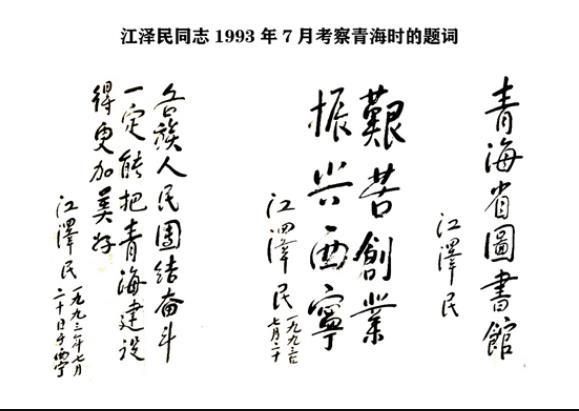 江泽民同志1993年7月考察青海时的题词
青海省圖書館
江澤民
艱苦創業
振兴西寧
江澤民
一九九三
七月二十
各族人民團结奋斗
一定能把青海建设
得更加美好
江澤民
一九九三年七月
二十日于西宁